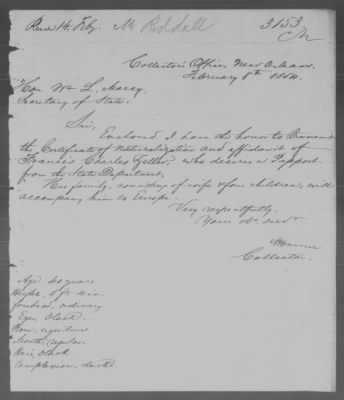 Recd 14 Feby. Mr Reddall 3153
Collector's Office, New Orleans.
February 8th 1854.
Hon. Wm L. Marcy,
Secretary of State.
Sir,
Enclosed I have the honor to transmit
the Certificate of Naturalization and affidavit of
Francis Charles Zeller, who desires a Passport
from the State Department.
His family, consisting of wife & four children, will
accompany him to Europe.
Very respectfully,
Your Ob. Servt
Collector.
Age 40 years
Height, 5 ft 4 in
forehead, ordinary
Eyes black.
Nose, aquiline
Mouth, regular
Hair, black
Complexion, dark